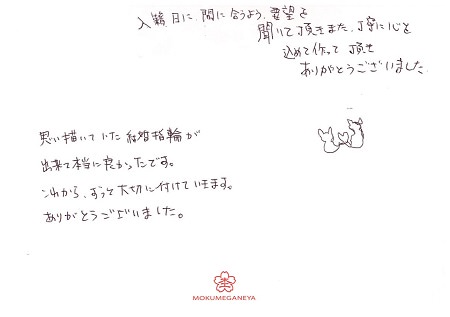 入籍日に、間に合うよう、要望を
聞いて頂きまた、丁寧に心を
込めて作って頂き
ありがとうございました。
思い描いていた結婚指輪が
出来て本当に良かったです。
これから、ずっと大切に付けていきます。
ありがとうございました。
MOKUMEGANEYA